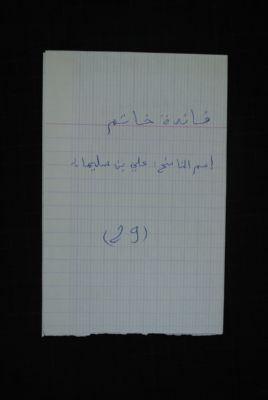 فائدة خاتم
إسم الناسخ: علي بن سليمان
(29)